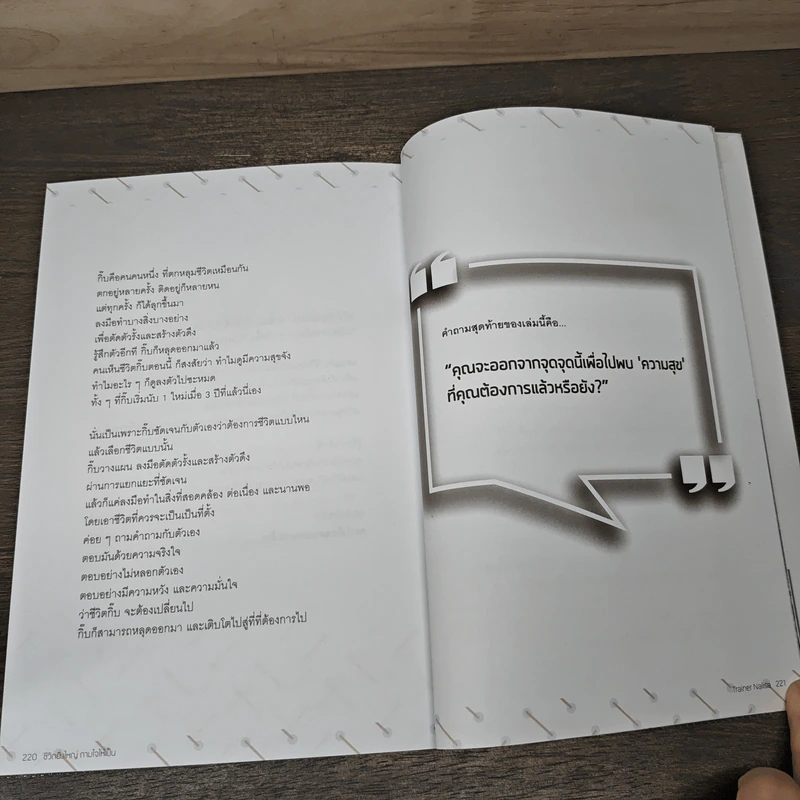 กิ๊บคือคนคนหนึ่ง ที่ตกหลุมชีวิตเหมือนกัน
ตกอยู่หลายครั้ง ติดอยู่ก็หลายหน
แต่ทุกครั้ง ก็ได้ลุกขึ้นมา
ลงมือทำบางสิ่งบางอย่าง
เพื่อตัดตัวรั้งและสร้างตัวดึง
รู้สึกตัวอีกที กิ๊บก็หลุดออกมาแล้ว
คนเห็นชีวิตกิ๊บตอนนี้ ก็สงสัยว่า ทำไมดูมีความสุขจัง
ทำไมอะไร ๆ ก็ดูลงตัวไปซะหมด
ทั้ง ๆ ที่กิ๊บเริ่มนับ 1 ใหม่เมื่อ 3 ปีที่แล้วนี่เอง
นั่นเป็นเพราะกิ๊บชัดเจนกับตัวเองว่าต้องการชีวิตแบบไหน
แล้วเลือกชีวิตแบบนั้น
กิ๊บวางแผน ลงมือตัดตัวรั้งและสร้างตัวดึง
ผ่านการแยกแยะที่ชัดเจน
แล้วก็แค่ลงมือทำในสิ่งที่สอดคล้อง ต่อเนื่อง และนานพอ
โดยเอาชีวิตที่ควรจะเป็นเป็นที่ตั้ง
ค่อย ๆ ถามคำถามกับตัวเอง
ตอบมันด้วยความจริงใจ
ตอบอย่างไม่หลอกตัวเอง
ตอบอย่างมีความหวัง และความมั่นใจ
ว่าชีวิตกิ๊บ จะต้องเปลี่ยนไป
กิ๊บก็สามารถหลุดออกมา และเติบโตไปสู่ที่ที่ต้องการไป
220 ชีวิตยิ่งใหญ่ ถามใจให้เป็น
คำถามสุดท้ายของเล่มนี้คือ...
"คุณจะออกจากจุดจุดนี้เพื่อไปพบ 'ความสุข'
ที่คุณต้องการแล้วหรือยัง?"
Trainer 221